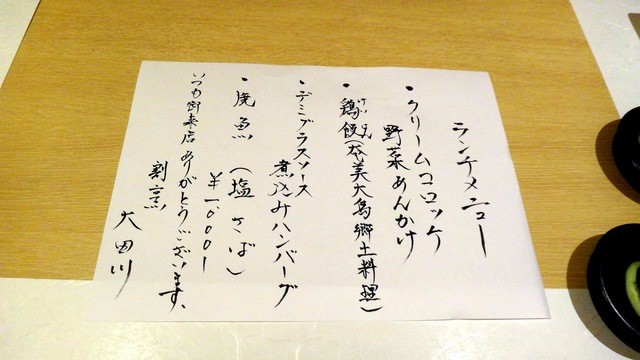 ランチメニュー
・クリームコロッケ
野菜あんかけ
・鶏飯(奄美大島郷土料理)
けいはん
・デミグラスソース
煮込みハンバーグ
・焼魚(塩さば)
¥1,000-
いつも御来店ありがとうございます。
割烹 大田川